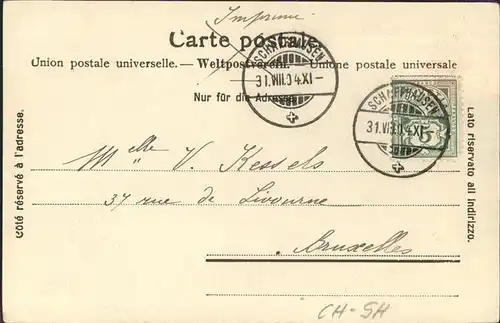 Imprimé
Carte postale.
Union postale universelle. — Weltpostverein. — Unione postale universale
SCHAFFHAUSEN
31.VIII.04.XI-
Nur für die Adresse.
SCHAFFHAUSEN
31.VIII.04.XI
5
Côté réservé à l'adresse.
Lato riservato all indirizzo.
Melle V. Kessels
37 rue de Livourne
Bruxelles
CH-SH